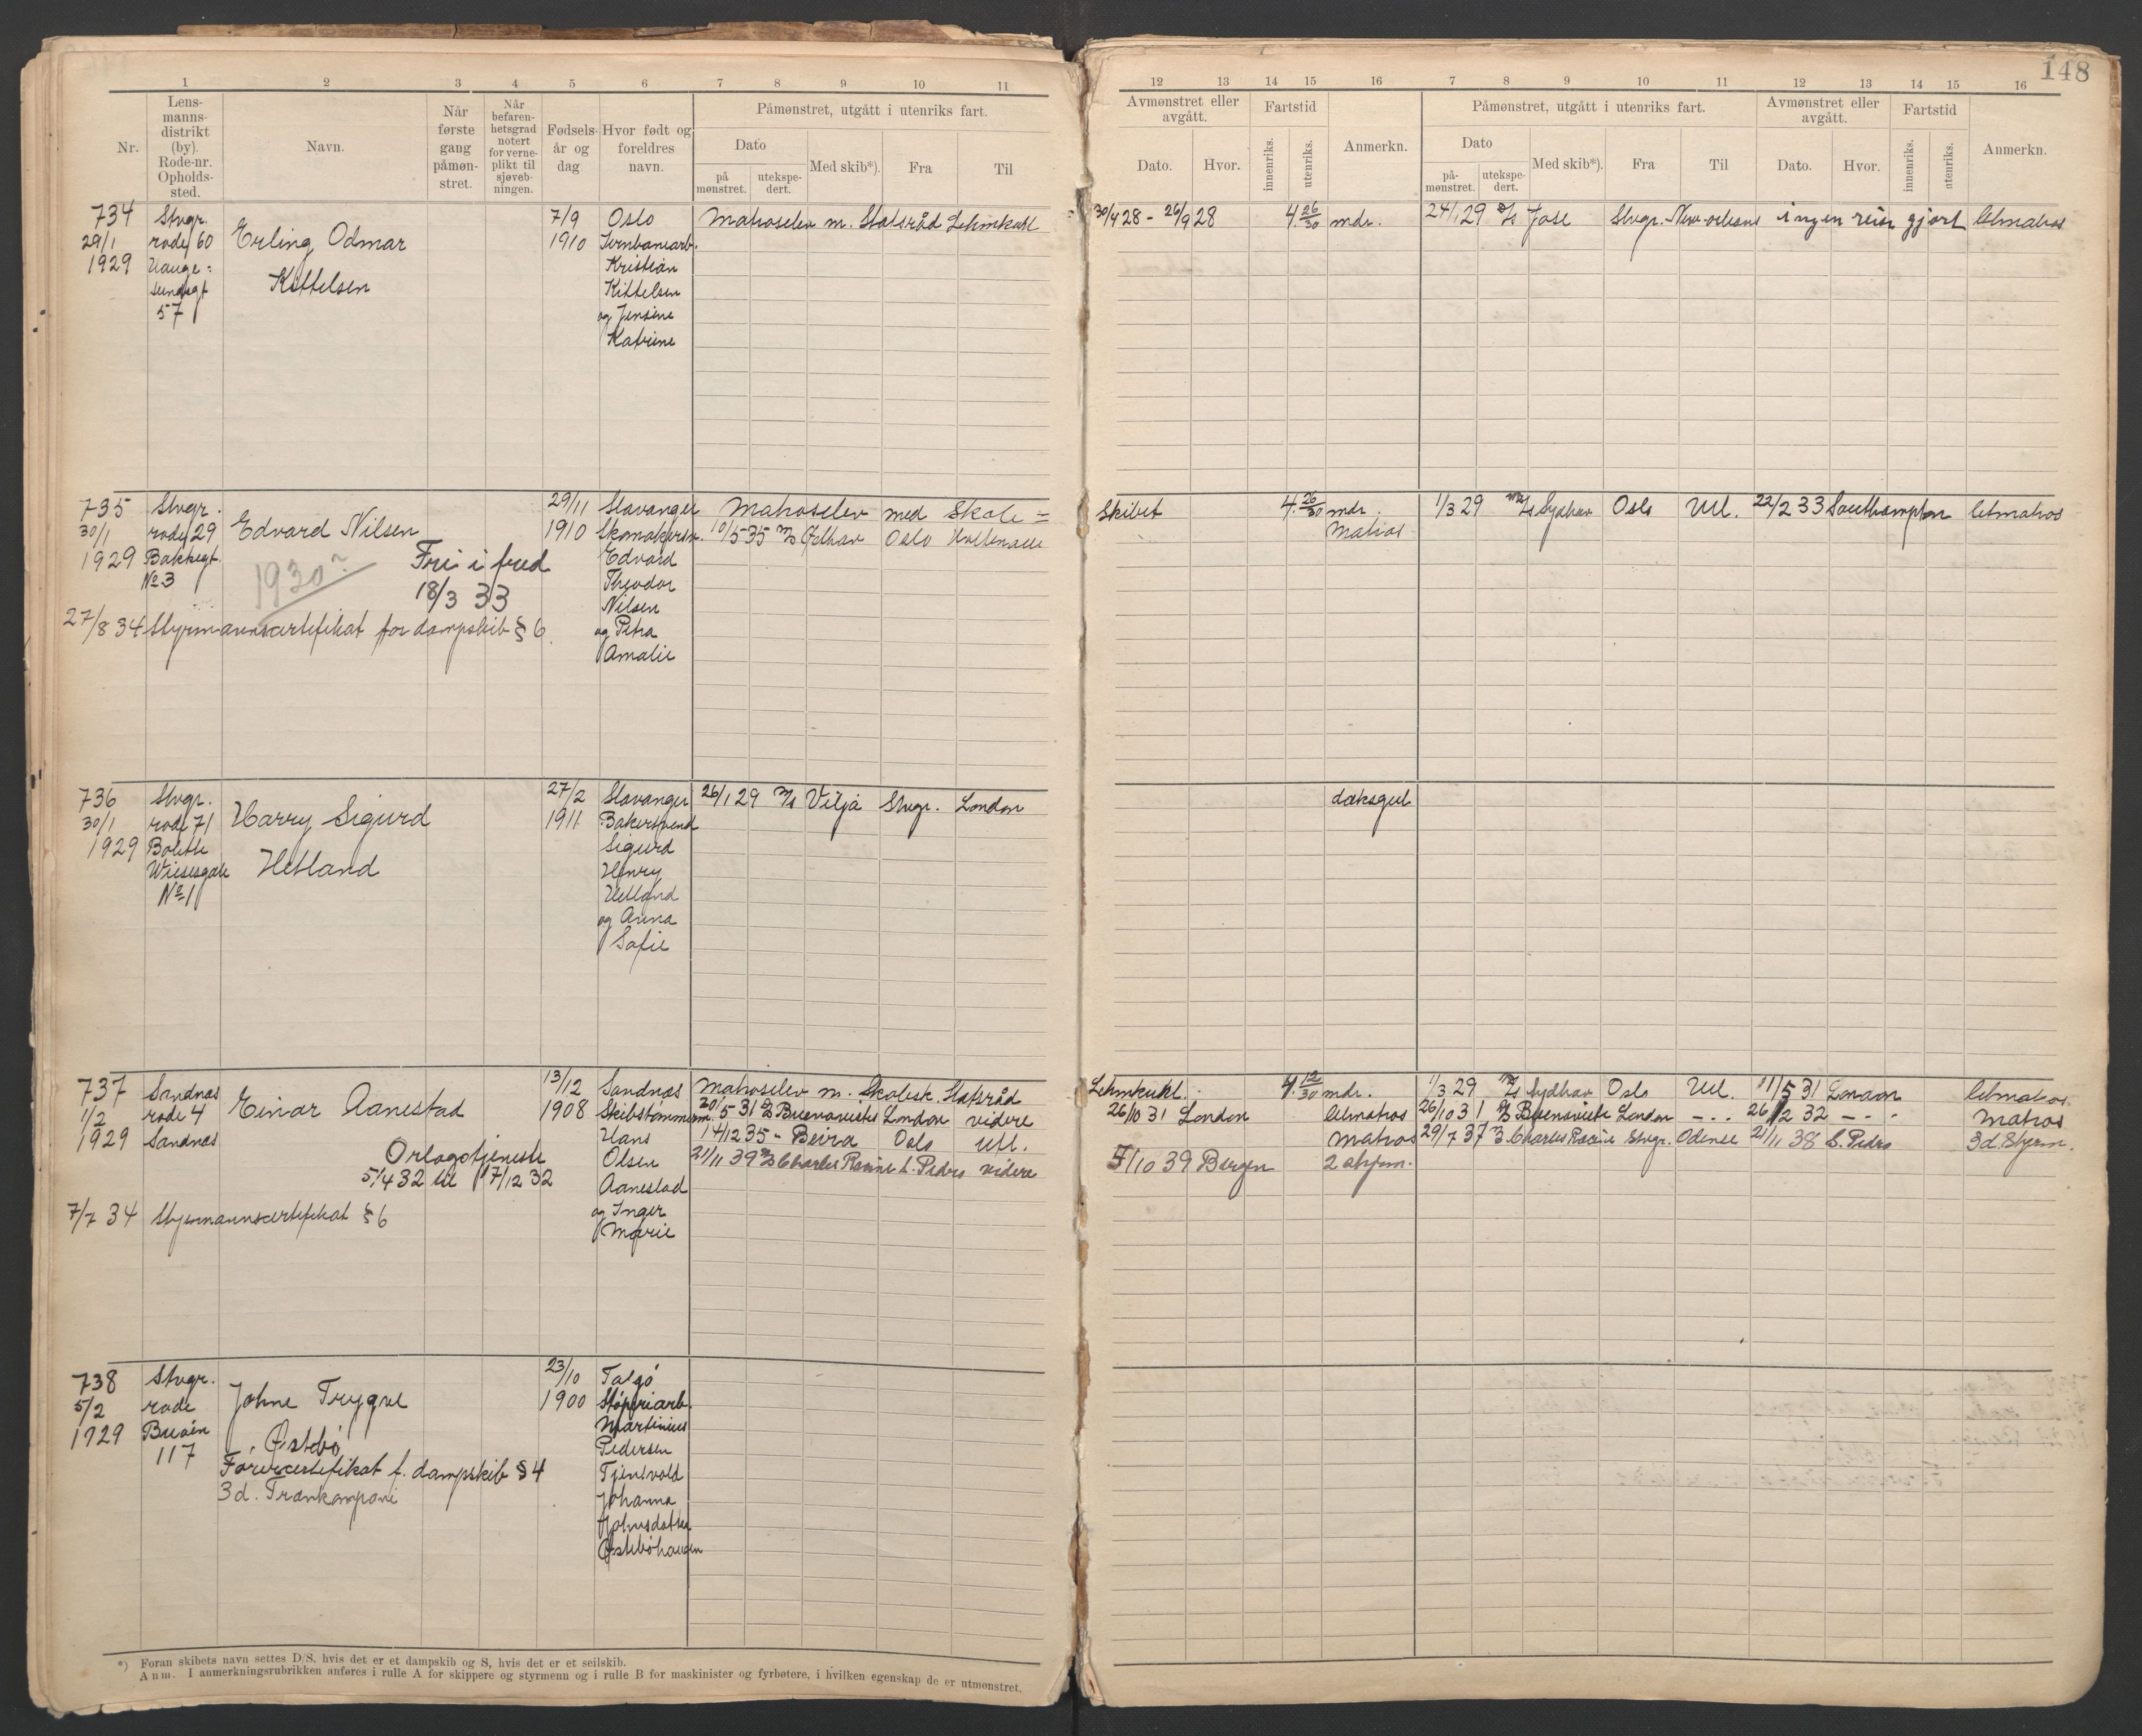 148
1 2 3 4 5 6 7 8 9 10 11
Nr.
Lens-
manns-
distrikt
(by).
Rode-nr.
Opholds-
sted.
Navn.
Når
første
gang
påmøn-
stret.
Når
befaren-
hetsgrad
notert
for verne-
plikt til
sjøveb-
ningen.
Fødsels-
år og
dag
Hvor født og
foreldres
navn.
Påmønstret, utgått i utenriks fart.
Dato
på
mønstret.
utekspe-
dert.
Med skib*).
Fra
Til
12 13 14 15 16 7 8 9 10 11 12 13 14 15 16
Avmønstret eller
avgått.
Dato.
Hvor.
Fartstid
innenriks.
utenriks.
Anmerkn.
Påmønstret, utgått i utenriks fart.
Dato
på-
mønstret.
utekspe-
dert.
Med skib*).
Fra
Til
Avmønstret eller
avgått.
Dato.
Hvor.
Fartstid
innenriks.
utenriks.
Anmerkn.
734
29/1
1929
Stvgr.
rode 60
Hauge=
sundsgt
57
Erling Odmar
Kittelsen
7/9
1910
Oslo
Jernbanearb.
Kristian
Kittelsen
og Jensine
Katrine
Matroselev m. Statsråd Lehmkuhl
30/4 28 - 26/9 28 4 26/30 mdr.
24/1 29 Jose Stvgr. New-orleans ingen reise gjort letmatros
735
30/1
1929
Stvgr.
rode 29
Bakkegt.
No 3
Edvard Nilsen
1930
Fri i fred
18/3 33
27/8 34 Styrmannscertifikat for dampskib § 6.
29/11
1910
Stavanger
Skomakersv.
Edvard
Theodor
Nilsen
og Petra
Amalie
Matroselev med Skole=
10/5 35 m/s Oslo
Skibet 4 26/30 mdr.
Matros
1/3 29 m/s Sydhav Oslo Utl. 22/2 33 Southampton letmatros
736
30/1
1929
Stvgr.
rode 71
Bolette
Wiesesgate
No 1
Harry Sigurd
Hetland
27/2
1911
Stavanger
Bakersvend
Sigurd
Henry
Hetland
og Anna
Sofie
26/1 29 m/s Vilja Stvgr. London
daksgut
737
1/2
1929
Sandnes
rode 4
Sandnes
Einar Aanestad
Orlogstjeneste
5/4 32 til 17/12 32
7/7 34 Styrmannscertifikat § 6
13/12
1908
Sandnes
Skibstømmerm.
Hans
Olsen
Aanestad
og Inger
Marie
Matroselev m. Skolesk. Statsråd
30/5 31 Buenavista London videre
14/12 35 - Beira Oslo Utl.
21/11 39 Charles Racine S. Pedro videre
Lehmkuhl. 4 12/30 mdr.
26/10 31 London letmatros
Matros
5/10 39 Bergen 2 styrm.
1/3 29 m/s Sydhav Oslo Utl. 11/5 31 London letmatros.
26/10 31 Buenavista London - . . 26/2 32 - . - Matros
29/7 37 Charles Racine Stvgr. Odense 21/11 38 S. Pedro 3d. Styrm.
738
5/2
1929
Stvgr.
rode
Buøen
117
Johne Trygve
Østebø
Førercertifikat f. dampskib § 4
3d. Trænkompani
23/10
1900
Talgø
Støperiarb.
Martinius
Pedersen
Tjentvold
Johanna
Johnsdatter
Østebøhaugen
*) Foran skibets navn settes D/S, hvis det er et dampskib og S, hvis det er et seilskib.
Anm. I anmerkningsrubrikken anføres i rulle A for skippere og styrmenn og i rulle B for maskinister og fyrbøtere, i hvilken egenskap de er utmønstret.